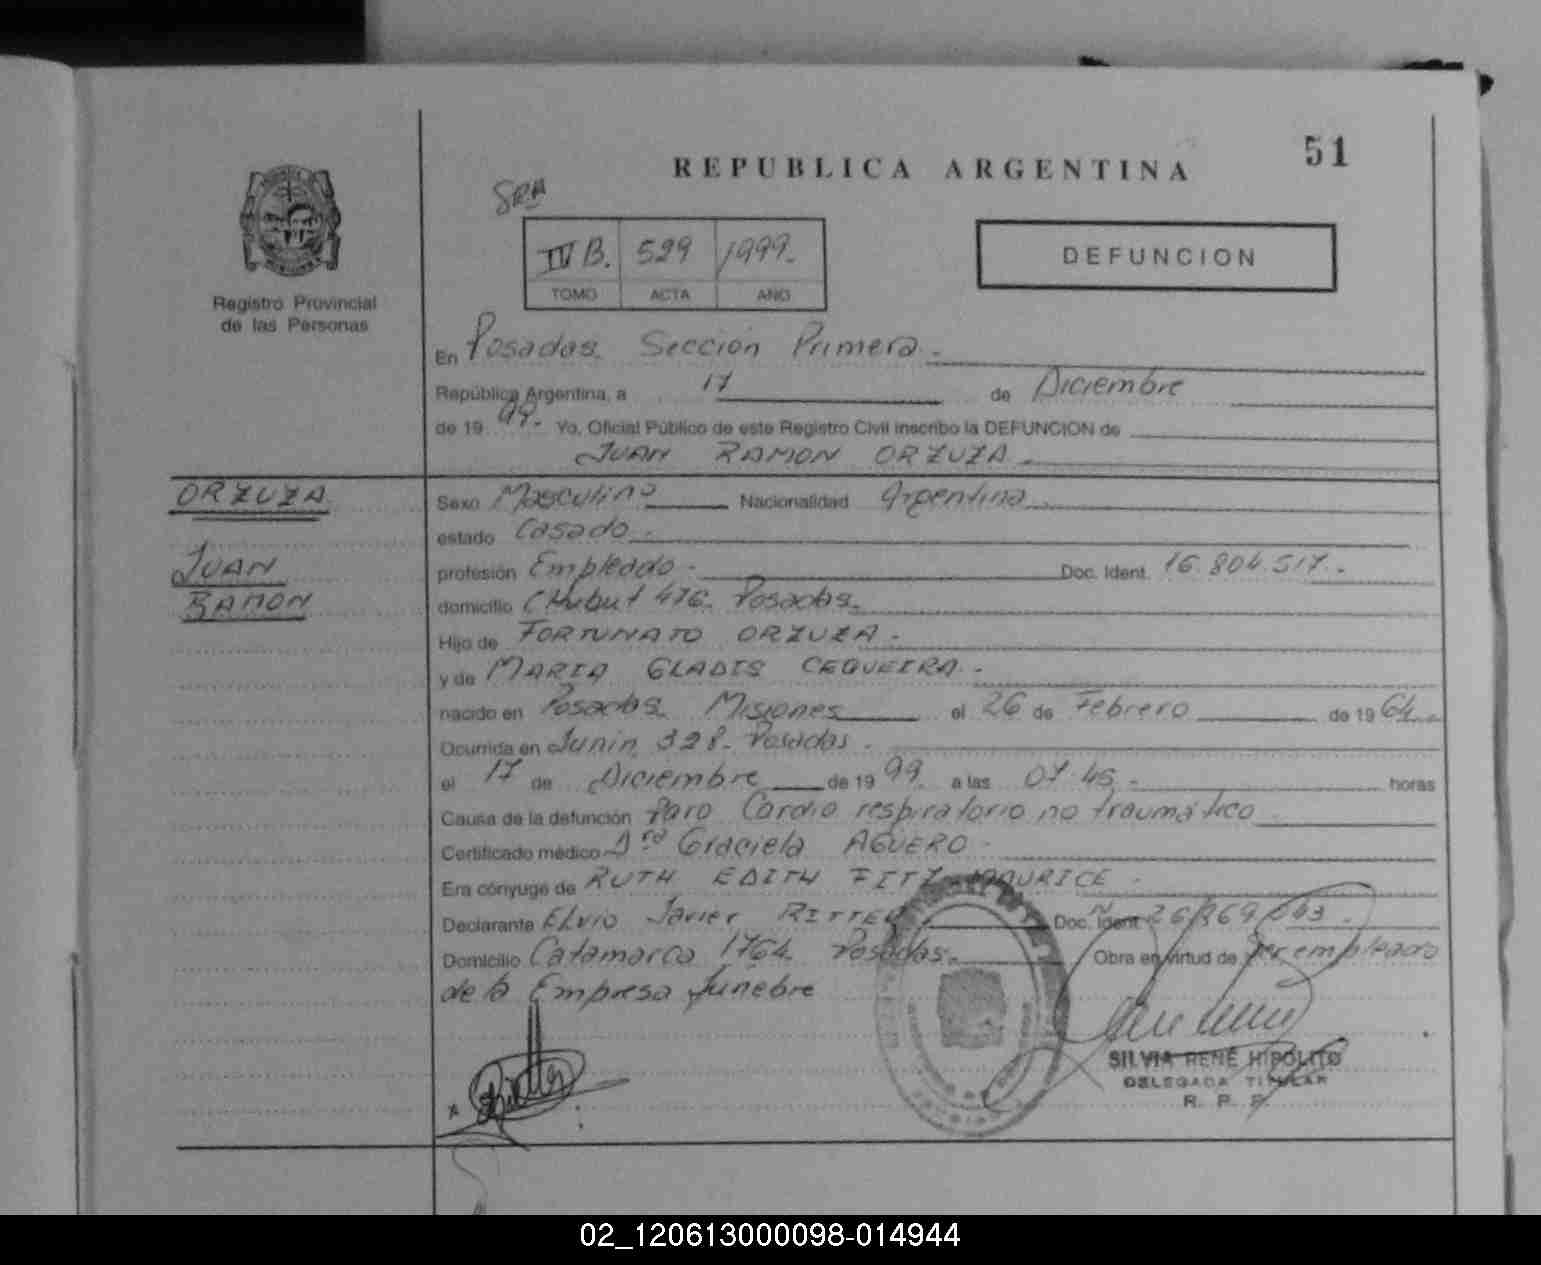 51
REPUBLICA ARGENTINA
SRA
IV B. 529 1999.
TOMO ACTA AÑO
DEFUNCION
Registro Provincial
de las Personas
En Posadas. Sección Primera.
República Argentina, a 17 de Diciembre
de 19 99. Yo, Oficial Público de este Registro Civil inscribo la DEFUNCION de
JUAN RAMON ORZUZA
ORZUZA
JUAN
RAMON
Sexo Masculino Nacionalidad Argentina
estado Casado.
profesión Empleado. Doc. Ident. 16.804.517.
domicilio Chubut 476. Posadas.
Hijo de FORTUNATO ORZUZA.
y de MARIA GLADIS CEQUEIRA.
nacido en Posadas. Misiones el 26 de Febrero de 19 64.
Ocurrida en Junin 328. Posadas.
el 17 de Diciembre de 19 99. a las 07.45. horas
Causa de la defunción Paro Cardio respiratorio no traumático
Certificado médico Dra Graciela AGUERO.
Era cónyuge de RUTH EDITH FITZ MAURICE.
Declarante Elvio Javier RITTER Doc. Ident.
Domicilio Catamarca 1764. Posadas. Obra en virtud de ser empleado
de la Empresa fúnebre
SILVIA RENE HIPOLITO
DELEGADA TITULAR
R. P. P.
02_120613000098-014944